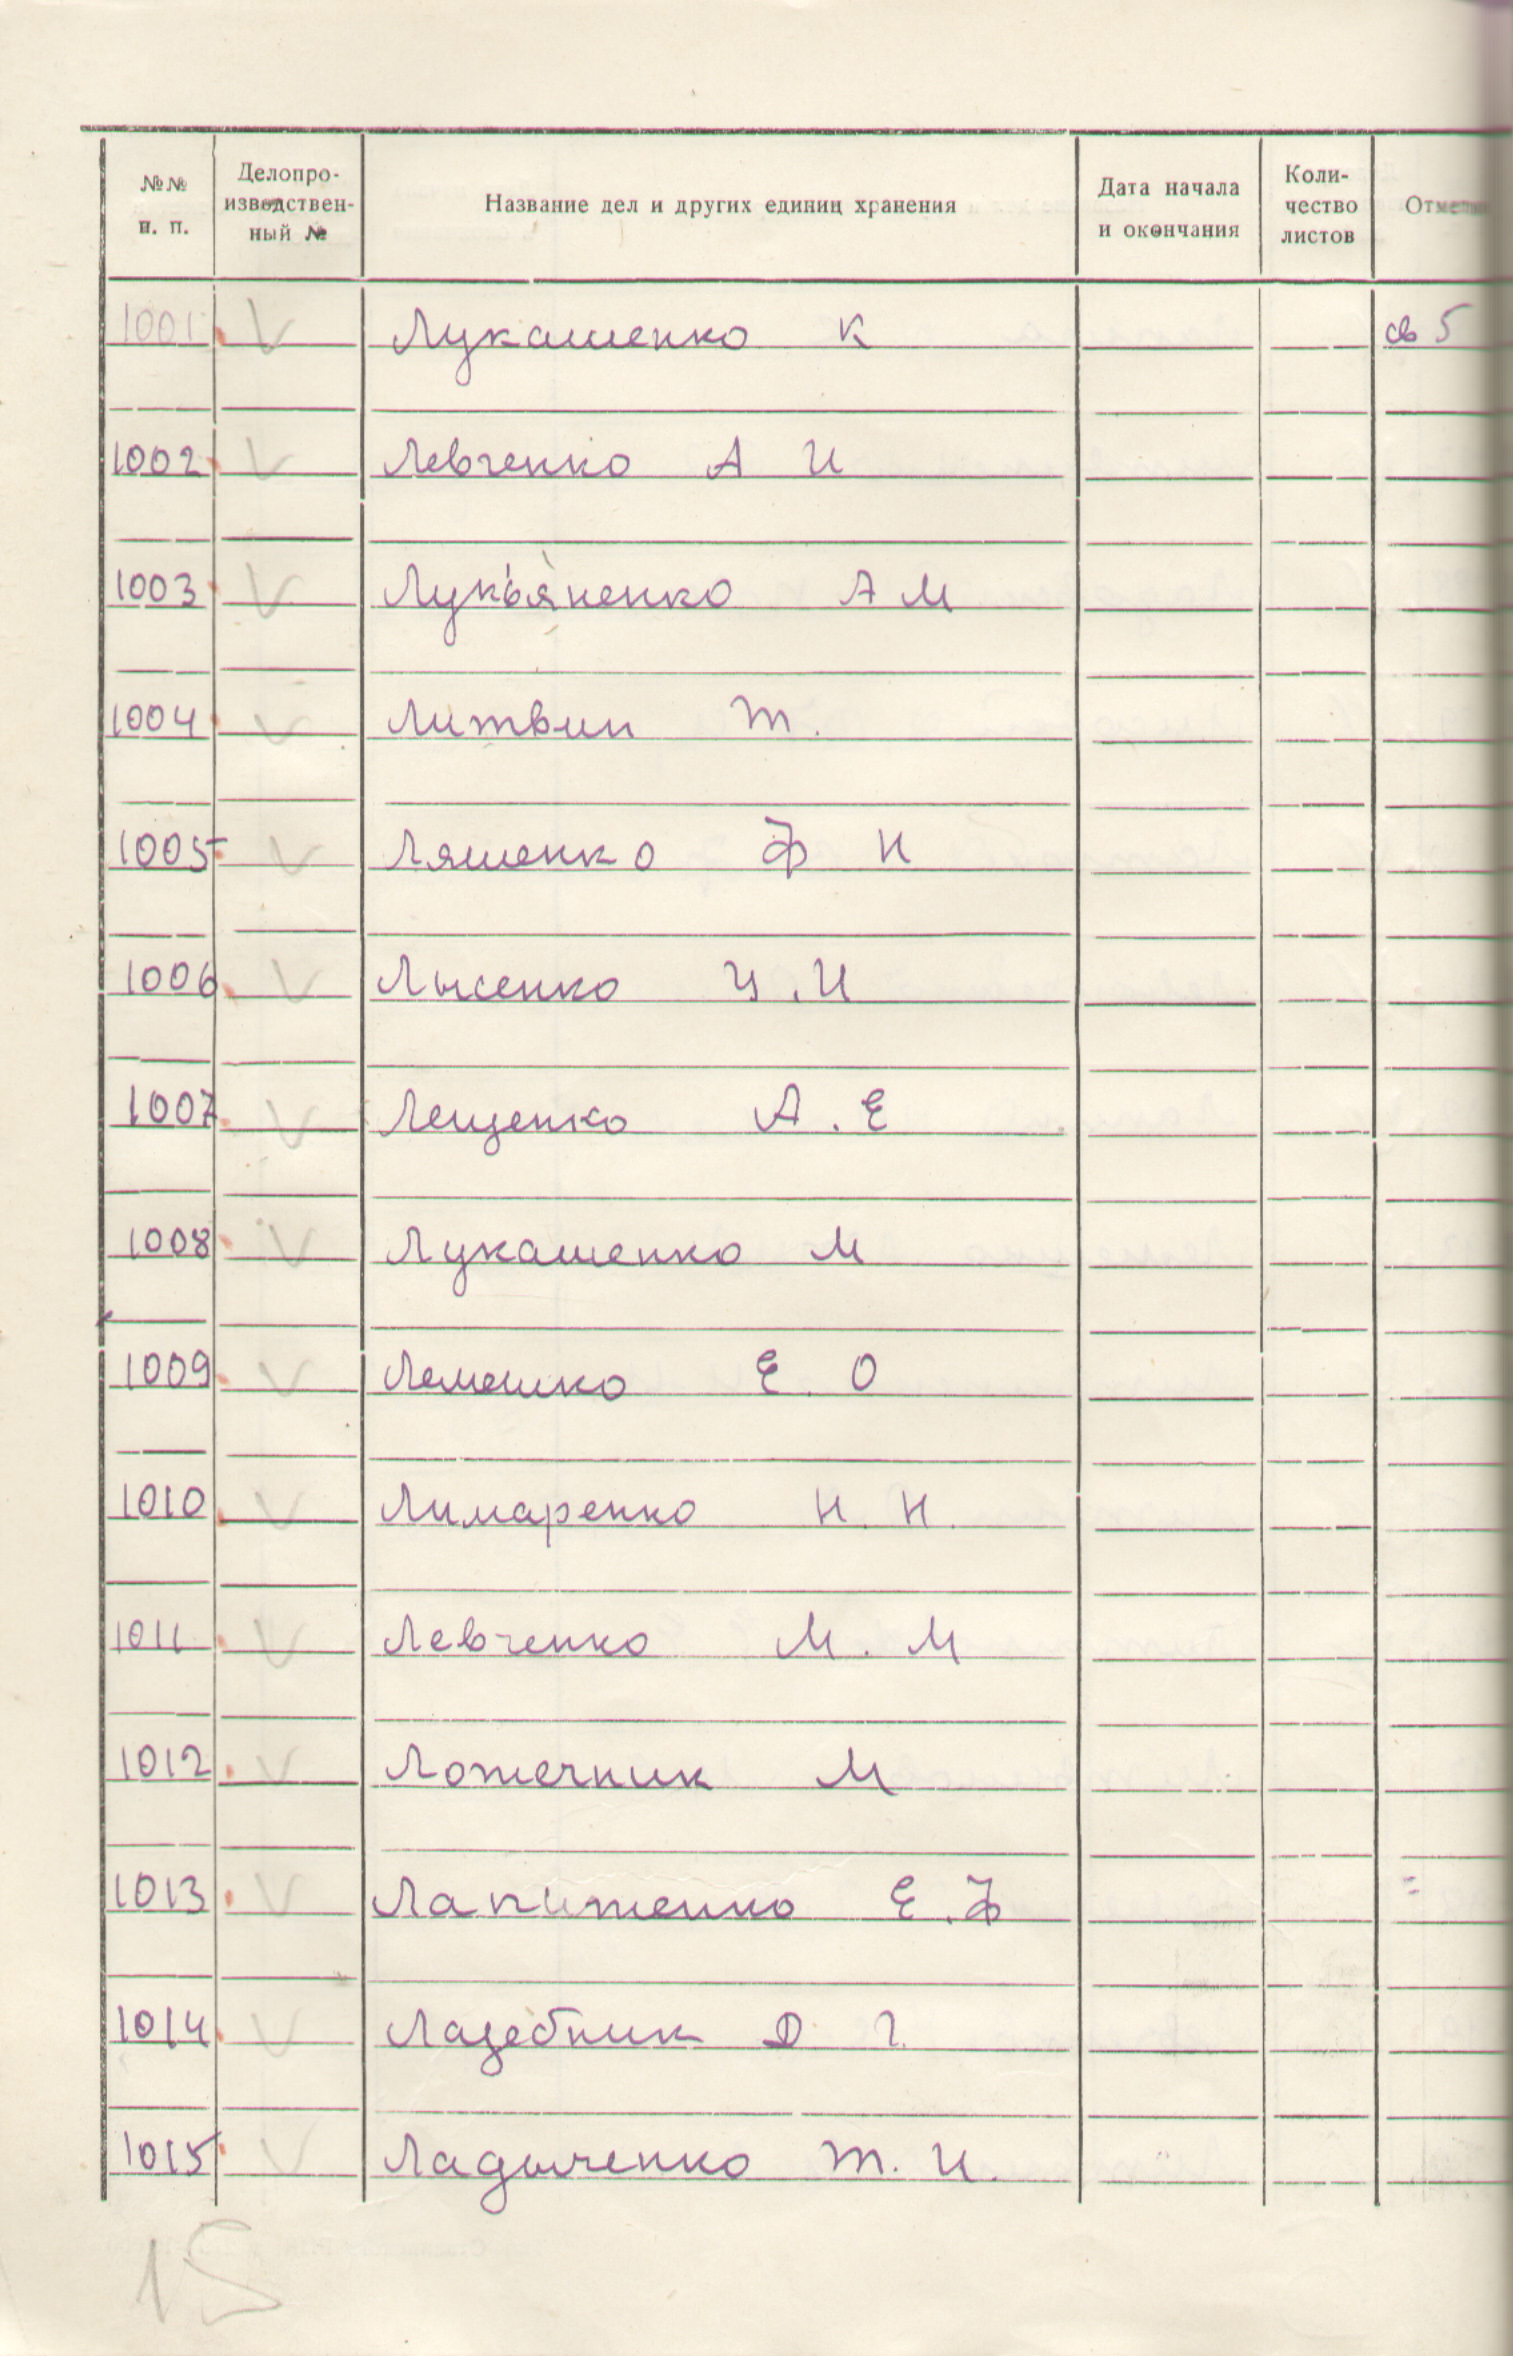 №№ п. п. Делопроизводственный № Название дел и других единиц хранения Дата начала и окончания Количество листов
1001. V Лукашенко К св 5
1002. V Левченко А И
1003. V Лукьяненко А М
1004. V Литвин Т.
1005. V Ляшенко Ф И
1006. V Лысенко И
1007. V Лещенко А. Е
1008. V Лукашенко М
1009. V Лемешко Е. О
1010. V Лимаренко Н. Н.
1011. V Левченко М. М
1012. V Ложечник М
1013. V Е. Ф
1014. V Лазебник Д Г.
1015. V Ладыченко Т. И.
15